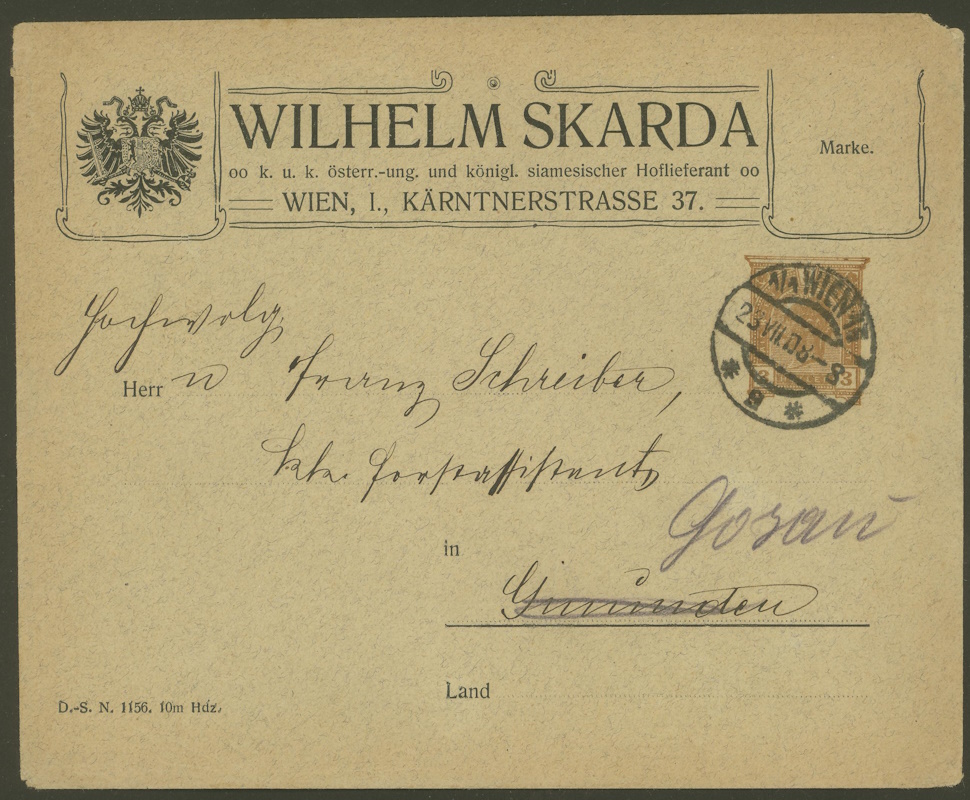 WILHELM SKARDA
oo k. u. k. österr.-ung. und königl. siamesischer Hoflieferant oo
WIEN, I., KÄRNTNERSTRASSE 37.
Marke.
1/1 WIEN
23 VII 08 - 8
3 3
Hochwolg.
Herrn
Franz Schreiber,
kk. Forstassistent
Gosau
in
Gmunden
Land
D.-S. N. 1156. 10m Hdz.